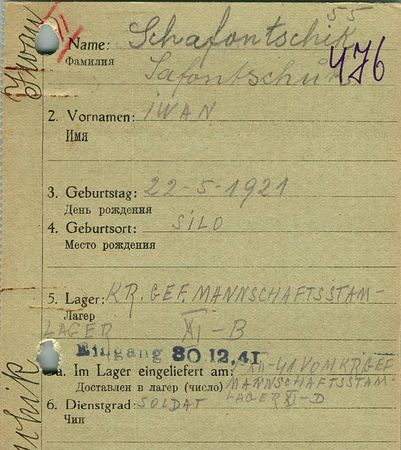 55
Name: Schafontschik
Фамилия Safontschuk
476
2. Vornamen: IWAN
Имя
3. Geburtstag: 22-5-1921
День рождения
4. Geburtsort: SILO
Место рождения
5. Lager: KR. GEF. MANNSCHAFTSSTAM-
Лагер
LAGER XI-B
Eingang 30.12.41
Im Lager eingeliefert am: XII-41 VOM KR GEF
Доставлен в лагер (число) MANNSCHAFTSSTAM-
LAGER XI-D
6. Dienstgrad: SOLDAT
Чин
Iwan